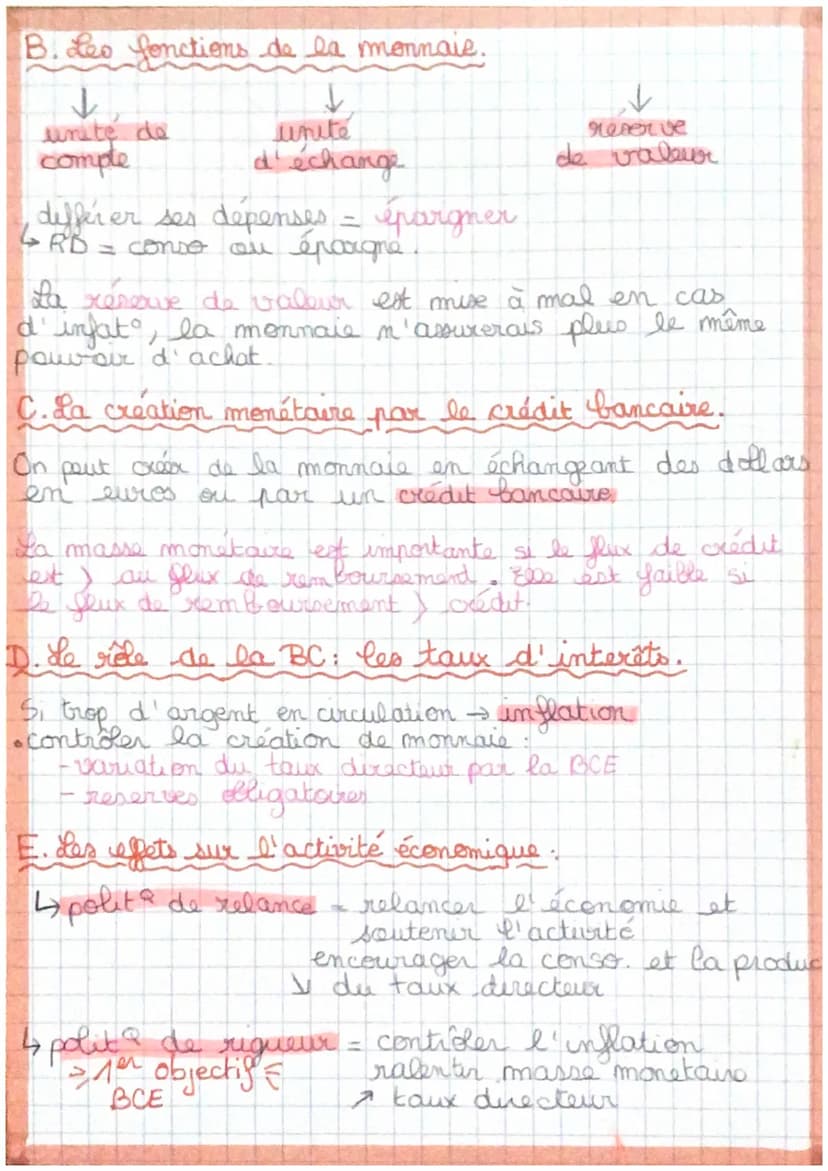 B. Les fonctions de la monnaie.
↓ ↓ ↓
unité de unité réserve
compte d'échange de valeur
différer ses dépenses = épargner
↳ RD = conso ou épargne.
La réserve de valeur est mise à mal en cas
d'infat°, la monnaie n'assurerais plus le même
pouvoir d'achat.
C. La création monétaire par le crédit bancaire.
On peut créer de la monnaie en échangeant des dollars
en euros ou par un crédit bancaire.
La masse monétaire est importante si le flux de crédit
est > au flux de remboursement. Elle est faible si
le flux de remboursement > crédit.
D. Le rôle de la BC: les taux d'interêts.
Si trop d'argent en circulation → inflation
• contrôler la création de monnaie :
- variation du taux directeur par la BCE
- reserves obligatoires
E. Les effets sur l'activité économique :
↳ politQ de relance = relancer l'économie et
soutenir l'activité
encourager la conso. et la produc
↘ du taux directeur
↳ politQ de rigueur = contrôler l'inflation
> 1er objectif < ralentir masse monétaire
BCE ↗ taux directeur